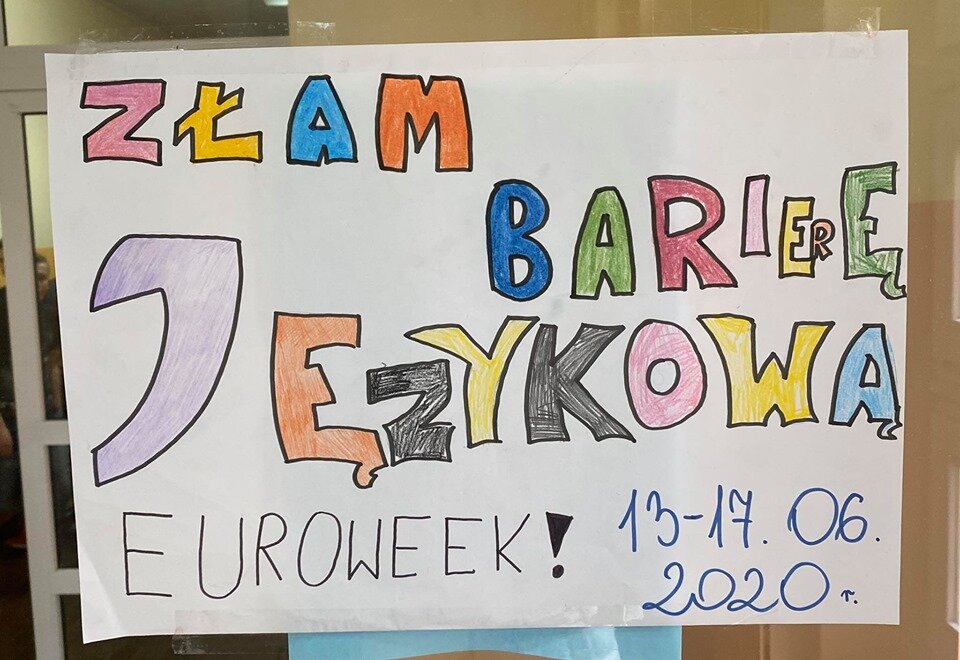 ZŁAM
BARIERĘ
JĘZYKOWĄ
EUROWEEK!
13-17. 06.
2020 r.